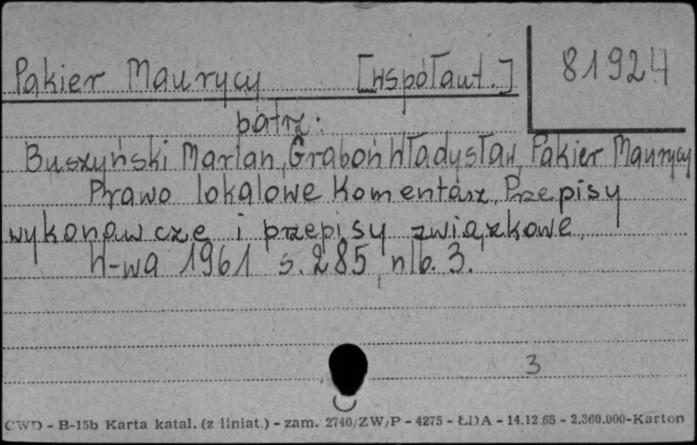 Pakier Maurycy [współaut.] 81924
patrz:
Buszyński Marian, Graboń Władysław, Pakier Maurycy
Prawo lokalowe Komentarz, Przepisy
wykonawcze i przepisy związkowe.
W-wa 1961 s. 285, nlb. 3.
3
CWD - B-15b Karta katal. (z liniat.) - zam. 2740/ZW/P - 4275 - ŁDA - 14.12.65 - 2.360.000-Karton